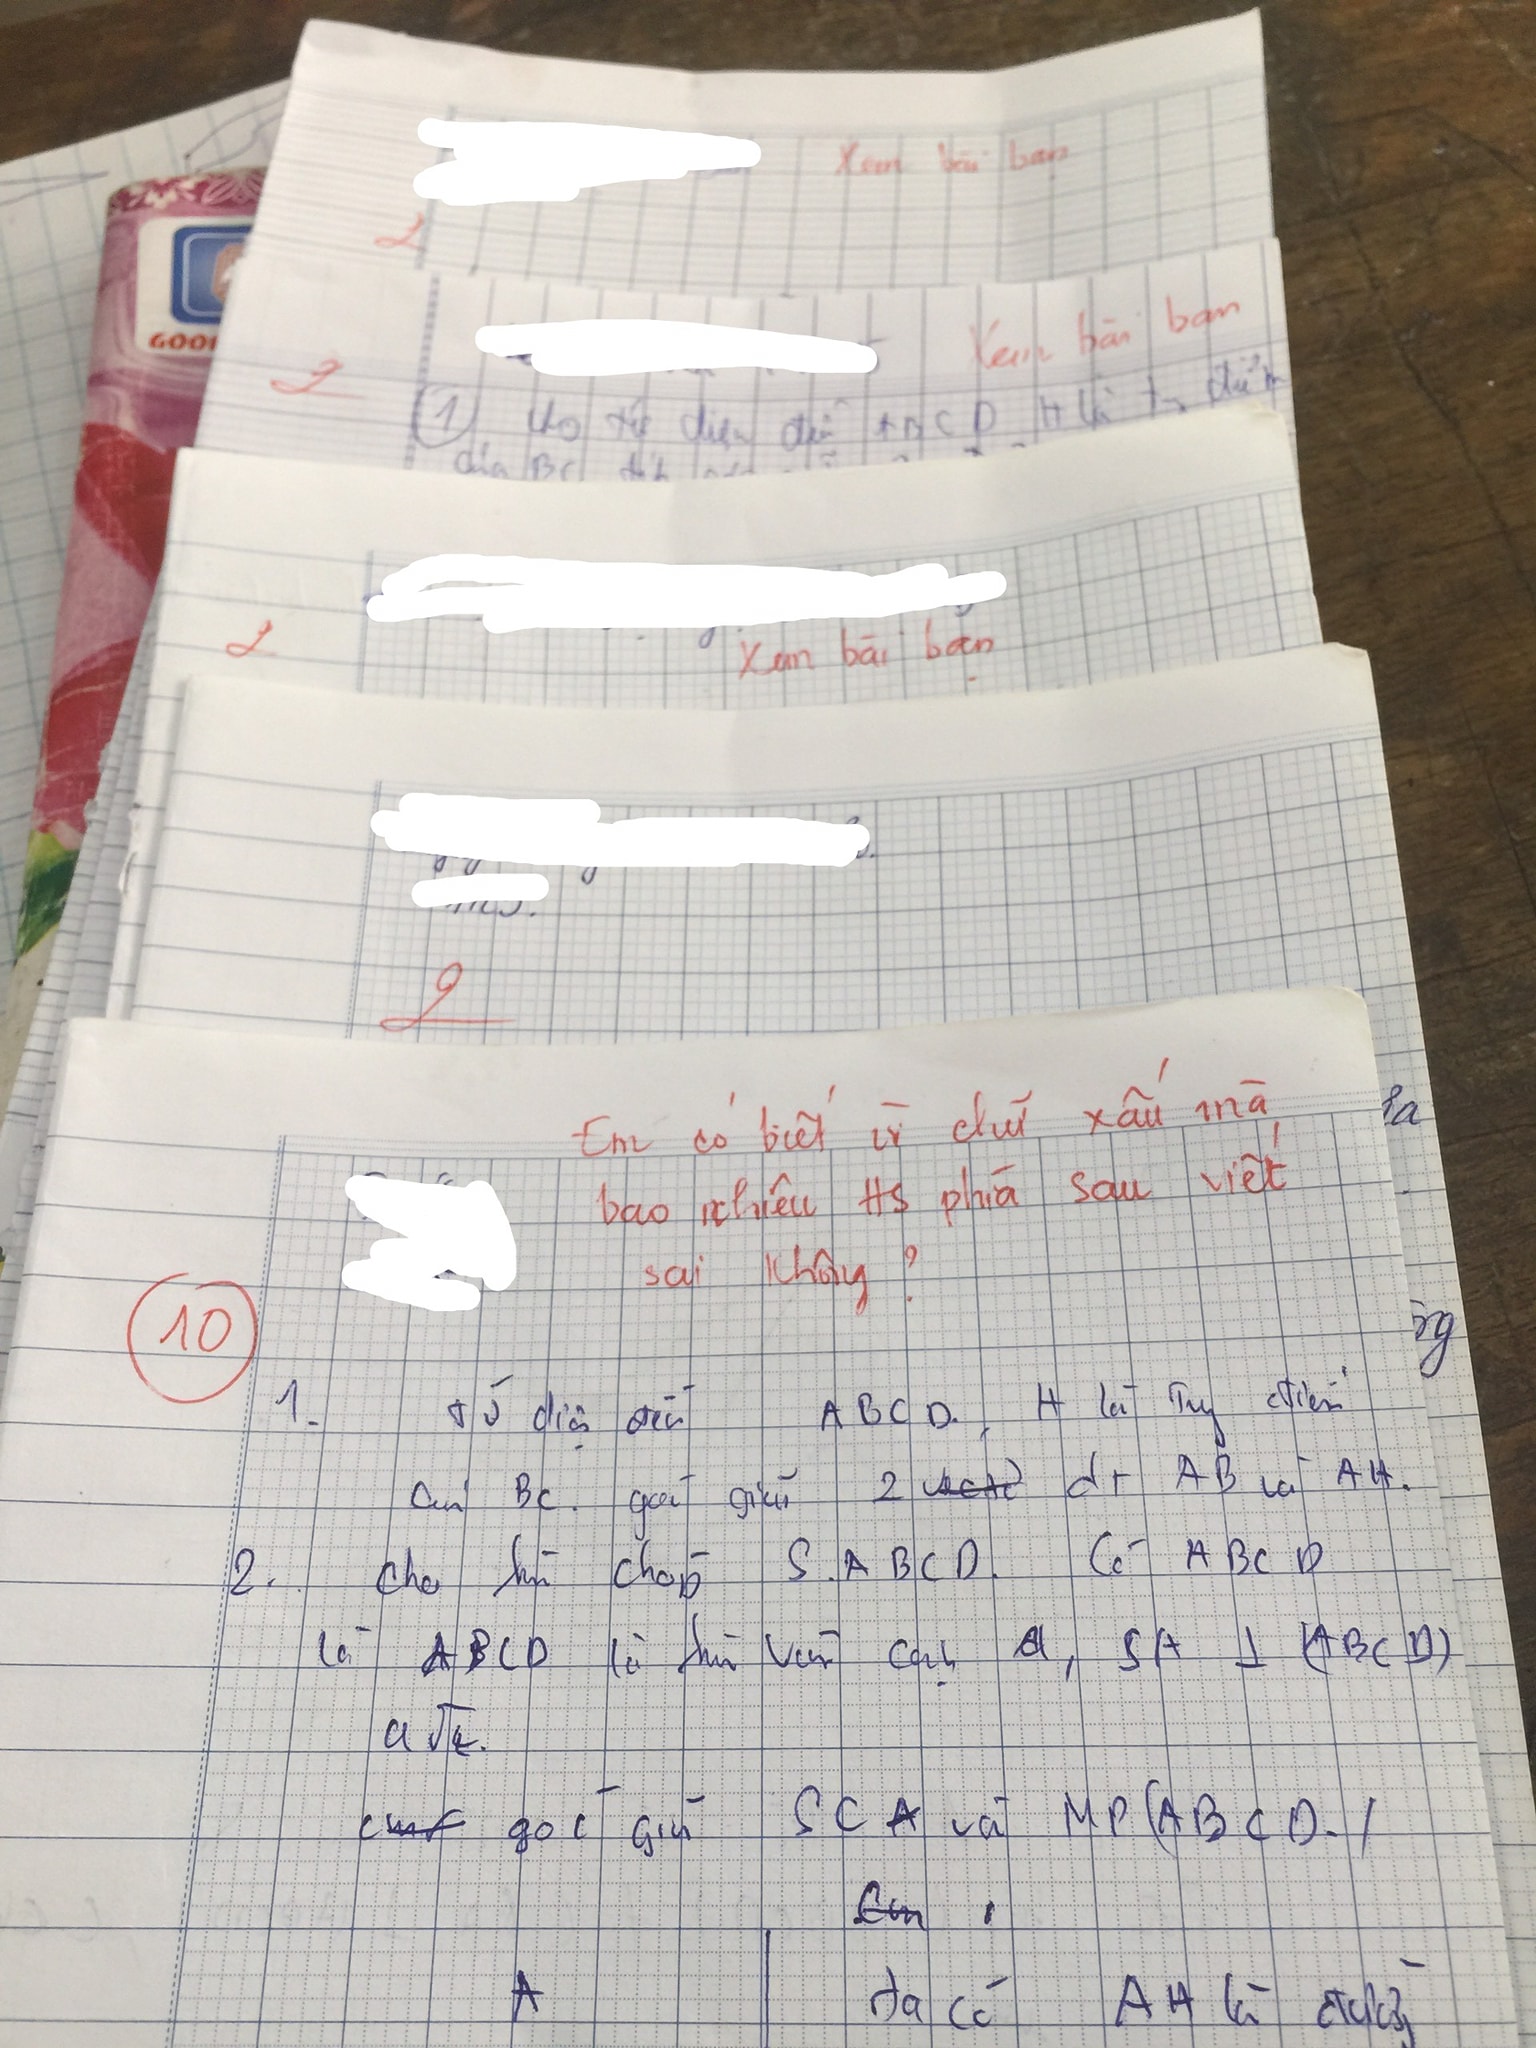 Xem bài bạn
2
GOO
Xem bài bạn
2
① Cho tứ diện đều ABCD H là
của BC
Xem bài bạn
2
2
Em có biết vì chữ xấu mà
bao nhiêu HS phía sau viết
sai không?
10
1. tứ diện đều ABCD, H là điểm
BC. góc giữa 2 đt AB và AH.
2. cho hình chóp S.ABCD. Có ABCD
là ABCD là hình vuông cạnh a, SA ⊥ (ABCD)
góc giữa SCA và MP(ABCD./
A
ta có AH là đường